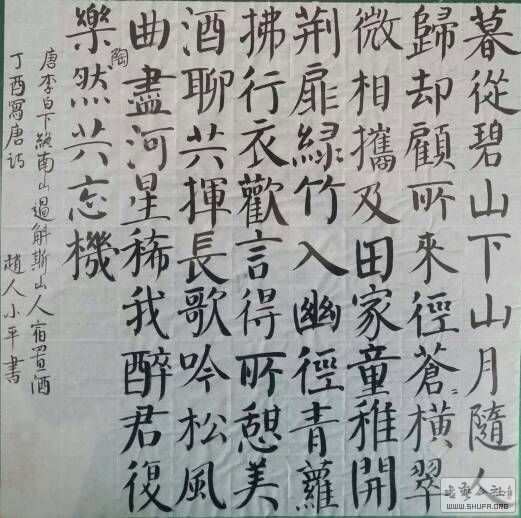 暮從碧山下山月隨人
歸却顧所來徑蒼〻橫翠
微相攜及田家童稚開
荊扉綠竹入幽徑青蘿
拂行衣歡言得所憩美
酒聊共揮長歌吟松風
曲盡河星稀我醉君復
樂然共忘機
陶
唐李白下終南山過斛斯山人宿置酒
丁酉寫唐詩 趙人小平書
WWW.SHUFA.ORG